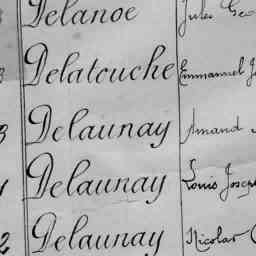 Delanoe Jules
Delatouche Emmanuel
Delaunay Amand
Delaunay Louis Joseph
2 Delaunay Nicolas